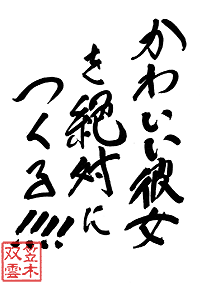 かわいい彼女
を絶対に
つくる!!!!
笠木
双雲